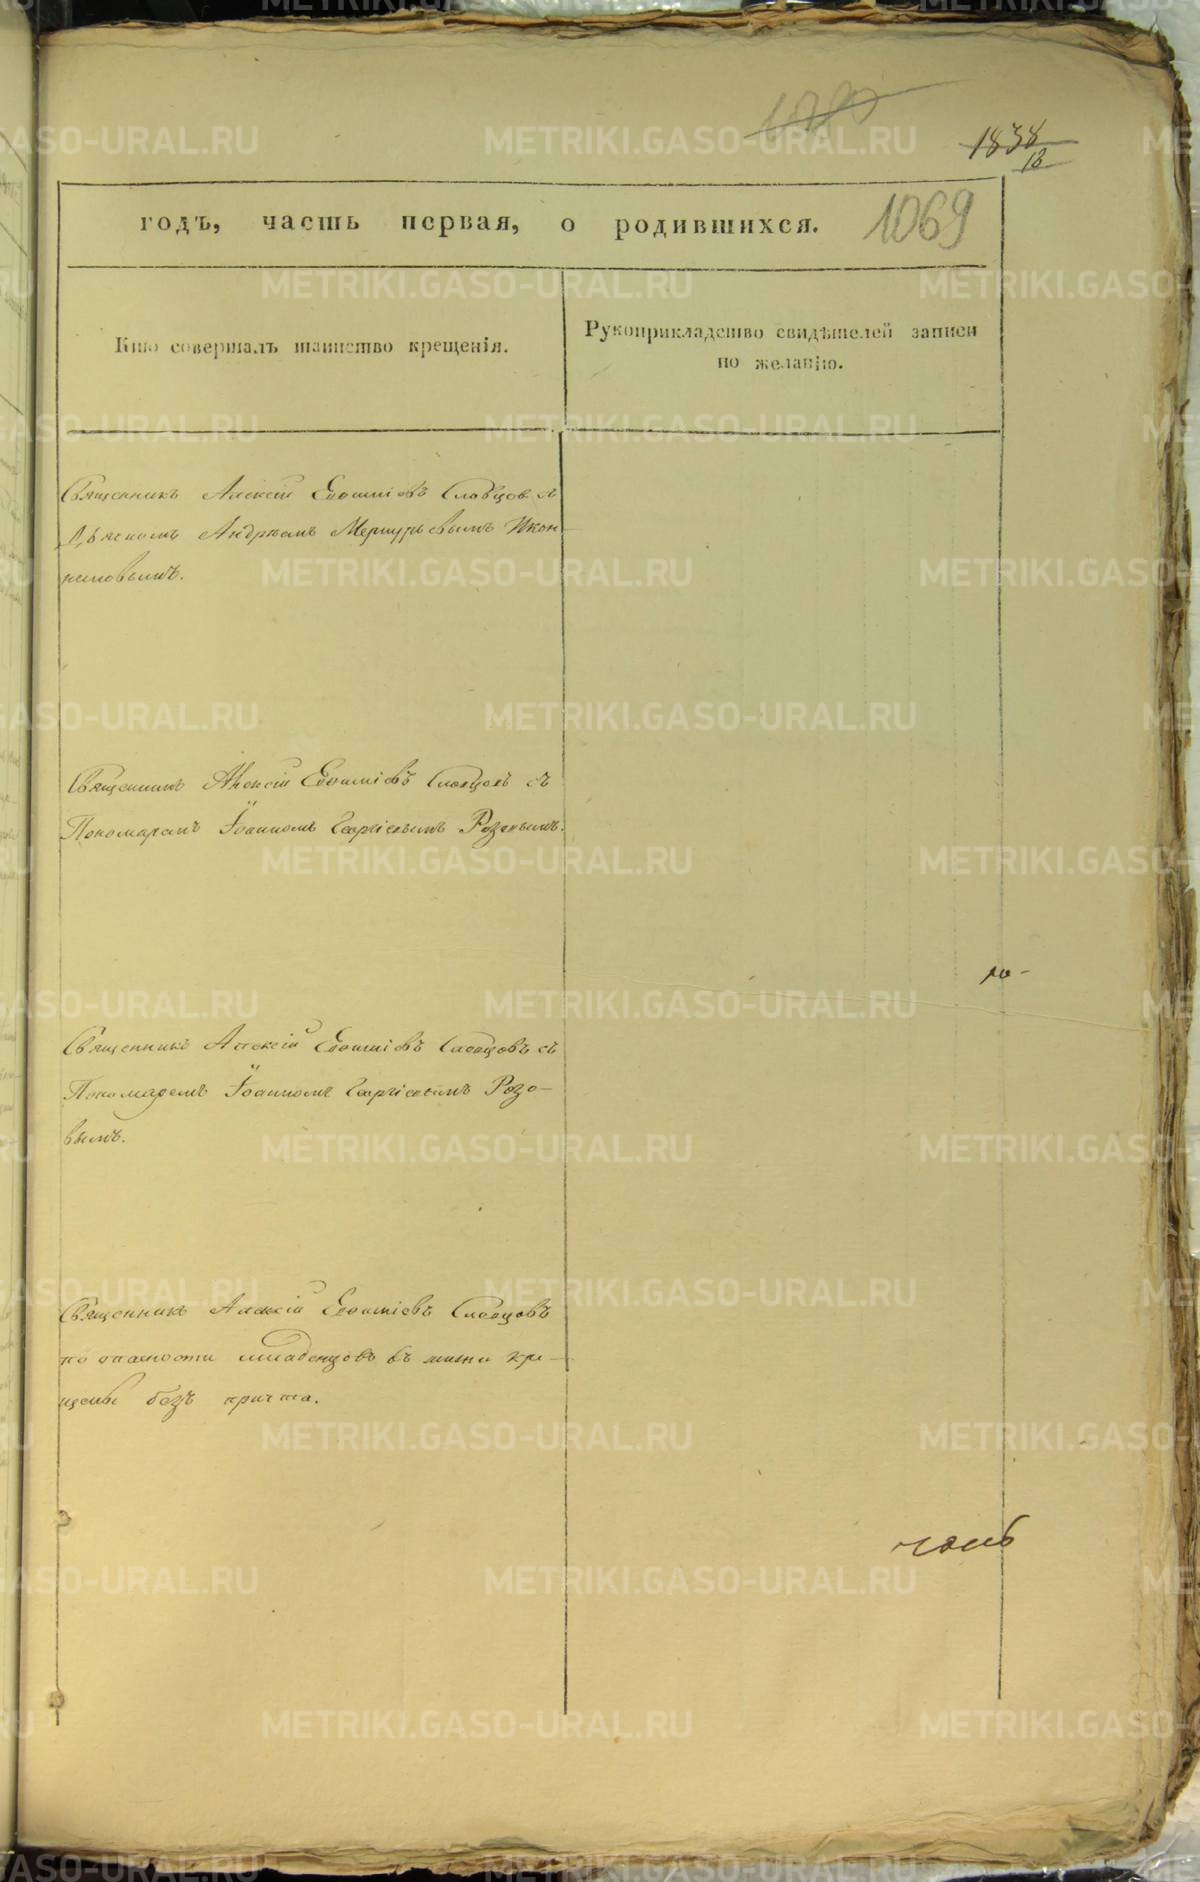 1838
18
годъ, часть первая, о родившихся. 1069
Кто совершалъ таинство крещенія.
Рукоприкладство свидѣтелей записи
по желанію.
Священникъ Алексій Евѳиміевъ Словцов съ
Діякономъ Андреемъ Меркурьевымъ Икон
никовымъ.
Священникъ Алексій Евѳиміевъ Словцовъ съ
Пономаремъ Іоанномъ Георгіевымъ Розовымъ.
ро-
Священникъ Алексій Евѳиміевъ Словцовъ съ
Пономаремъ Іоанномъ Георгіевымъ Розо-
вымъ.
Священникъ Алексій Евѳиміевъ Словцовъ
по опасности младенцовъ въ жизни кре-
щены безъ причта.
METRIKI.GASO-URAL.RU